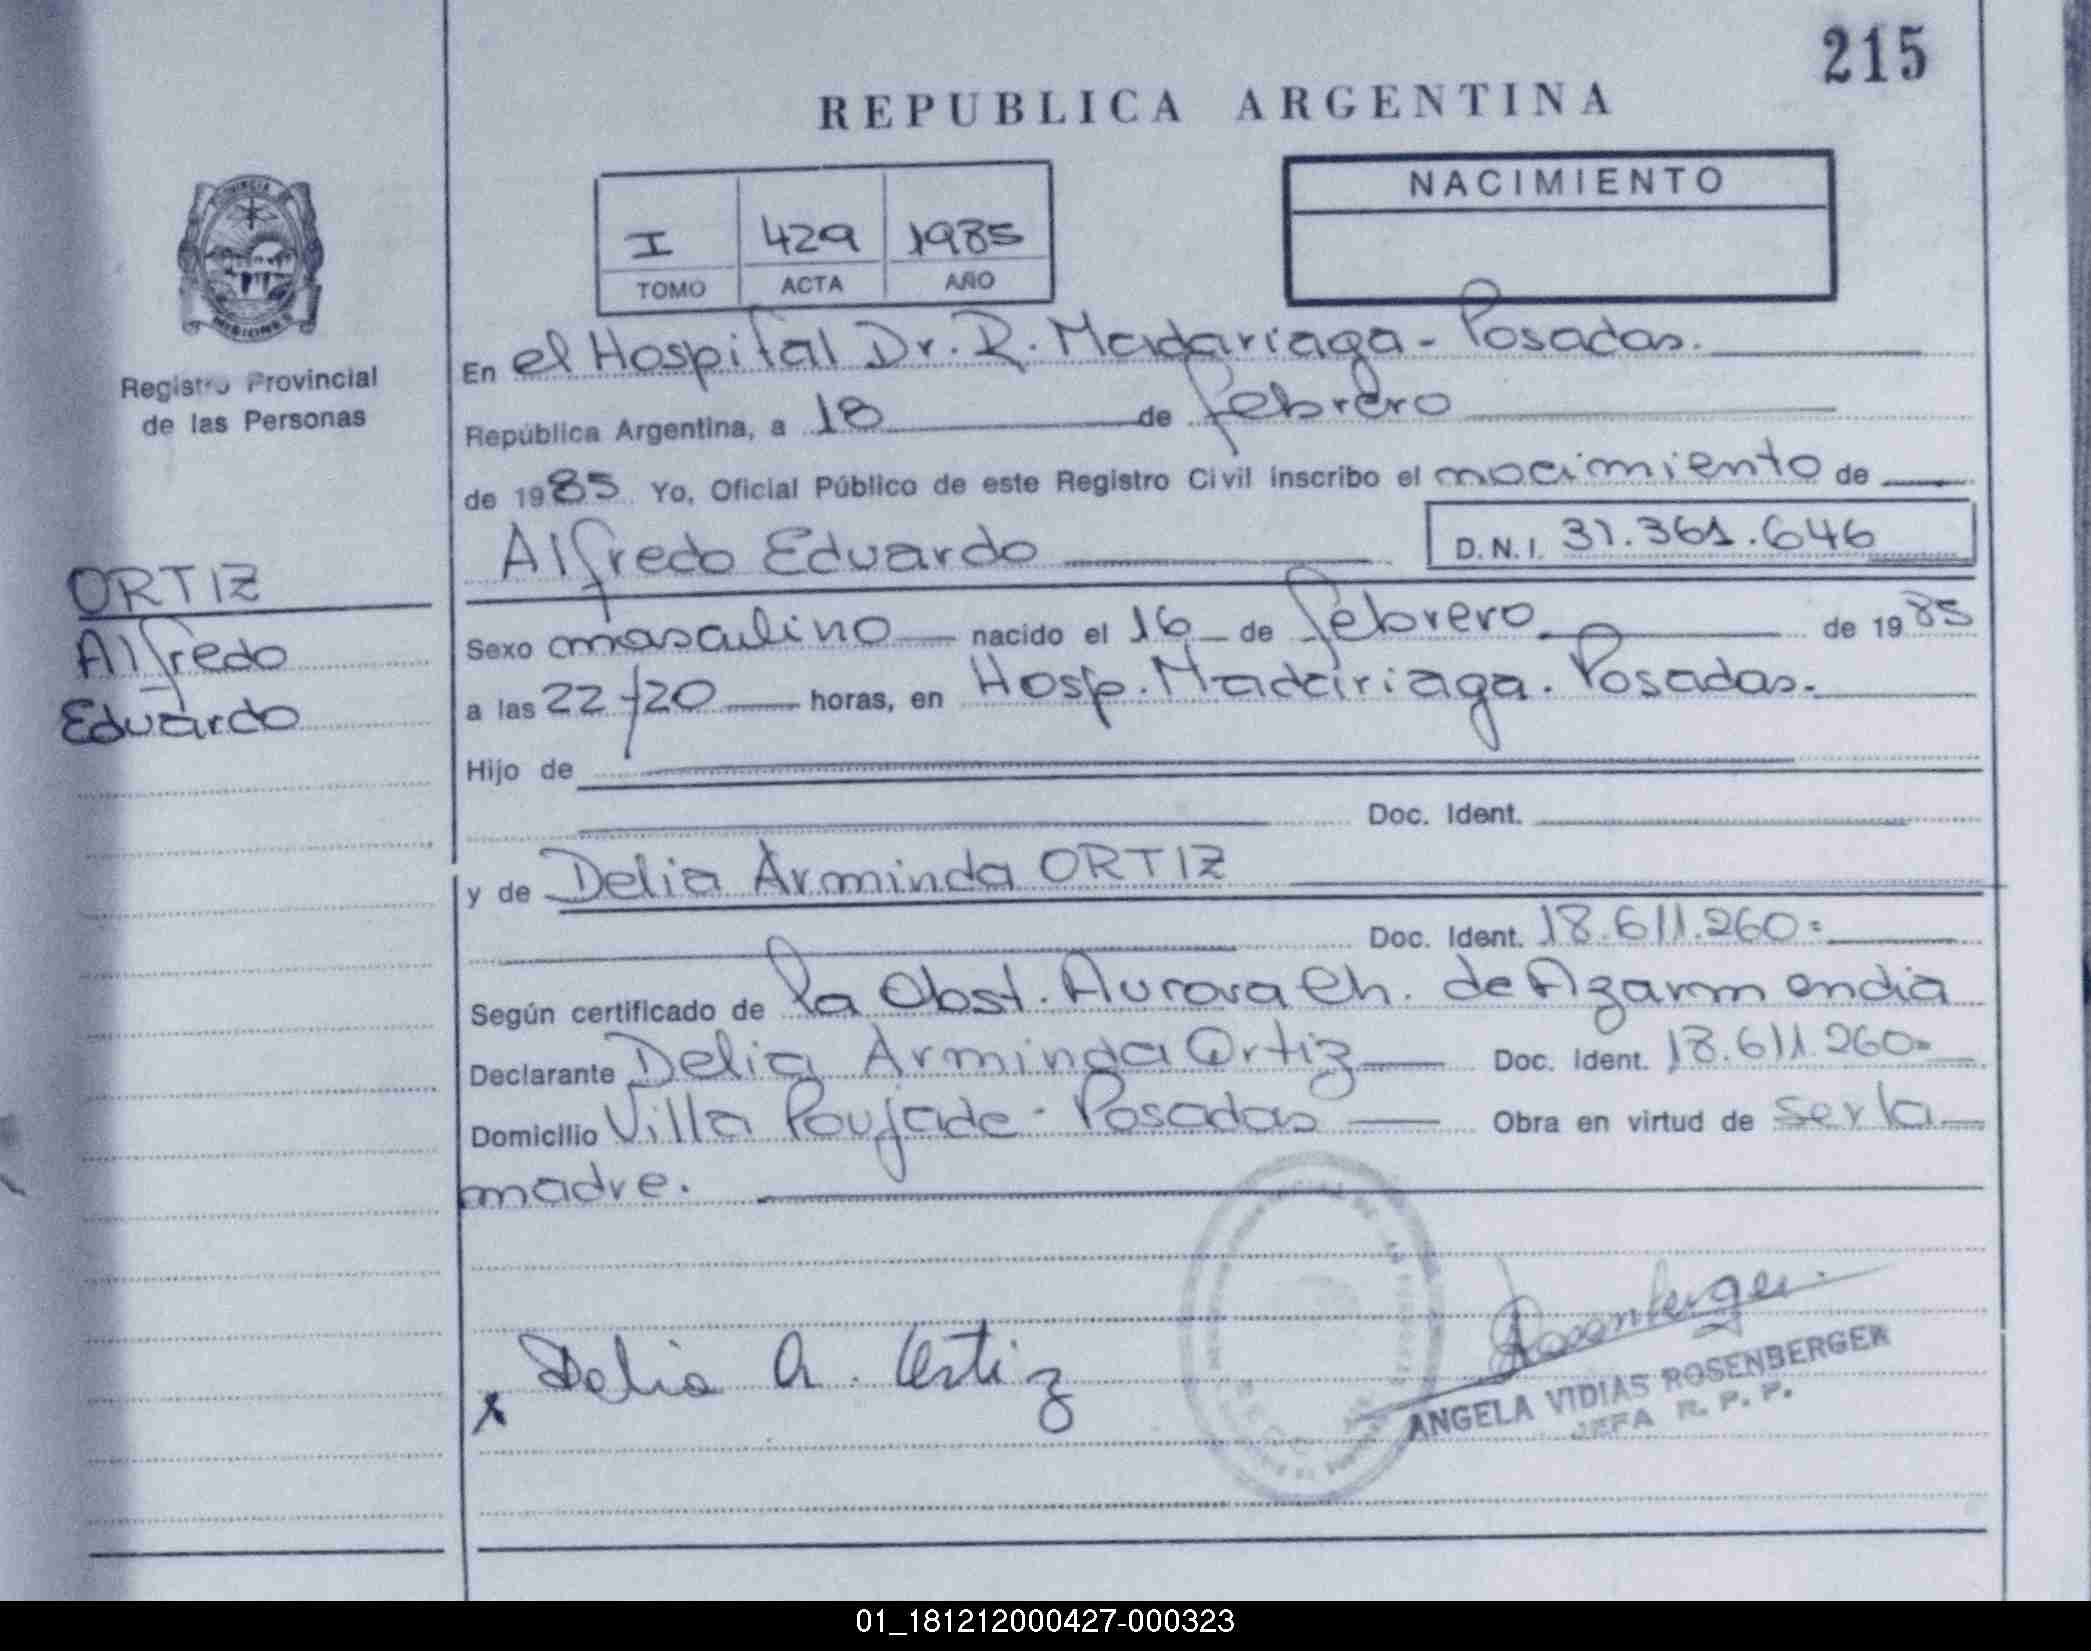 215
REPUBLICA ARGENTINA
I 429 1985
TOMO ACTA AÑO
NACIMIENTO
PROVINCIA
MISIONES
Registro Provincial
de las Personas
ORTIZ
Alfredo
Eduardo
En el Hospital Dr. R. Madariaga - Posadas.
República Argentina, a 18 de febrero
de 1985 Yo, Oficial Público de este Registro Civil inscribo el nacimiento de
Alfredo Eduardo D.N.I. 31.361.646
Sexo masculino nacido el 16 de febrero de 1985
a las 22/20 horas, en Hosp. Madariaga. Posadas.
Hijo de
Doc. Ident.
y de Delia Arminda ORTIZ
Doc. Ident. 18.611.260=
Según certificado de la Obst. Aurora Ch. de Azarmendia
Declarante Delia Arminda Ortiz Doc. Ident. 18.611.260=
Domicilio Villa Poujade - Posadas Obra en virtud de ser la
madre.
x Delia A. Ortiz
Rosenberger
ANGELA VIDIAS ROSENBERGER
JEFA R. P. P.
01_181212000427-000323